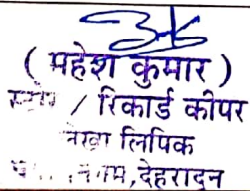 ( महेश कुमार )
स्टोर / रिकार्ड कीपर
लिपिक
देहरादून